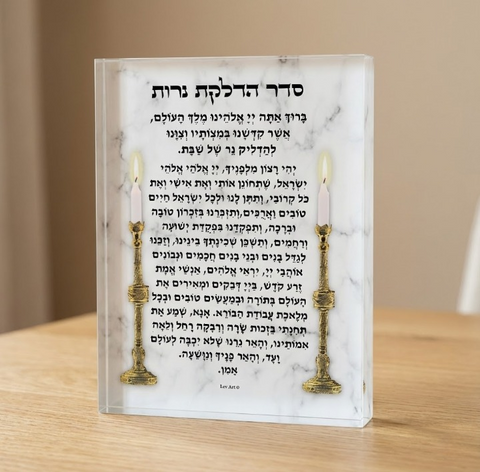 סדר הדלקת נרות
בָּרוּךְ אַתָּה יְיָ אֱלֹהֵינוּ מֶלֶךְ הָעוֹלָם,
אֲשֶׁר קִדְּשָׁנוּ בְּמִצְוֹתָיו וְצִוָּנוּ
לְהַדְלִיק נֵר שֶׁל שַׁבָּת.
יְהִי רָצוֹן מִלְּפָנֶיךָ, יְיָ אֱלֹהַי אֱלֹהֵי
יִשְׂרָאֵל, שֶׁתְּחוֹנֵן אוֹתִי וְאֶת אִישִׁי וְאֶת
כל קְרוֹבַי, וְתִתֵּן לָנוּ וּלְכָל יִשְׂרָאֵל חַיִּים
טוֹבִים וַאֲרֻכִּים, וְתִזְכְּרֵנוּ בְּזִכְרוֹן טוֹבָה
וּבְרָכָה, וְתִפְקְדֵנוּ בִּפְקֻדַּת יְשׁוּעָה
וְרַחֲמִים, וְתַשְׁכֵּן שְׁכִינָתְךָ בֵּינֵינוּ, וְזַכֵּנוּ
לְגַדֵּל בָּנִים וּבְנֵי בָנִים חֲכָמִים וּנְבוֹנִים
אוֹהֲבֵי יְיָ, יִרְאֵי אֱלֹהִים, אַנְשֵׁי אֱמֶת
זֶרַע קֹדֶשׁ, בַּייָ דְּבֵקִים וּמְאִירִים אֶת
הָעוֹלָם בְּתוֹרָה וּבְמַעֲשִׂים טוֹבִים וּבְכָל
מְלֶאכֶת עֲבוֹדַת הַבּוֹרֵא. אָנָּא, שְׁמַע אֶת
תְּחִנָּתִי בִּזְכוּת שָׂרָה וְרִבְקָה רָחֵל וְלֵאָה
אִמּוֹתֵינוּ, וְהָאֵר נֵרֵנוּ שֶׁלֹּא יִכְבֶּה לְעוֹלָם
וָעֶד, וְהָאֵר פָּנֶיךָ וְנִוָּשֵׁעָה.
אָמֵן.
Lev Art ©